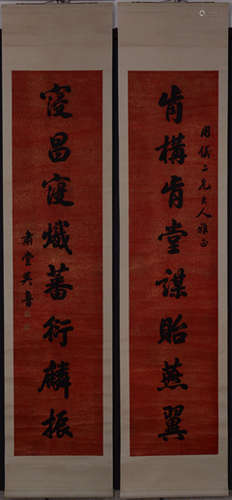 用儀二兄大人雅正
肯構肯堂謀貽燕翼
寖昌寖熾蕃衍麟振
肅堂吳魯